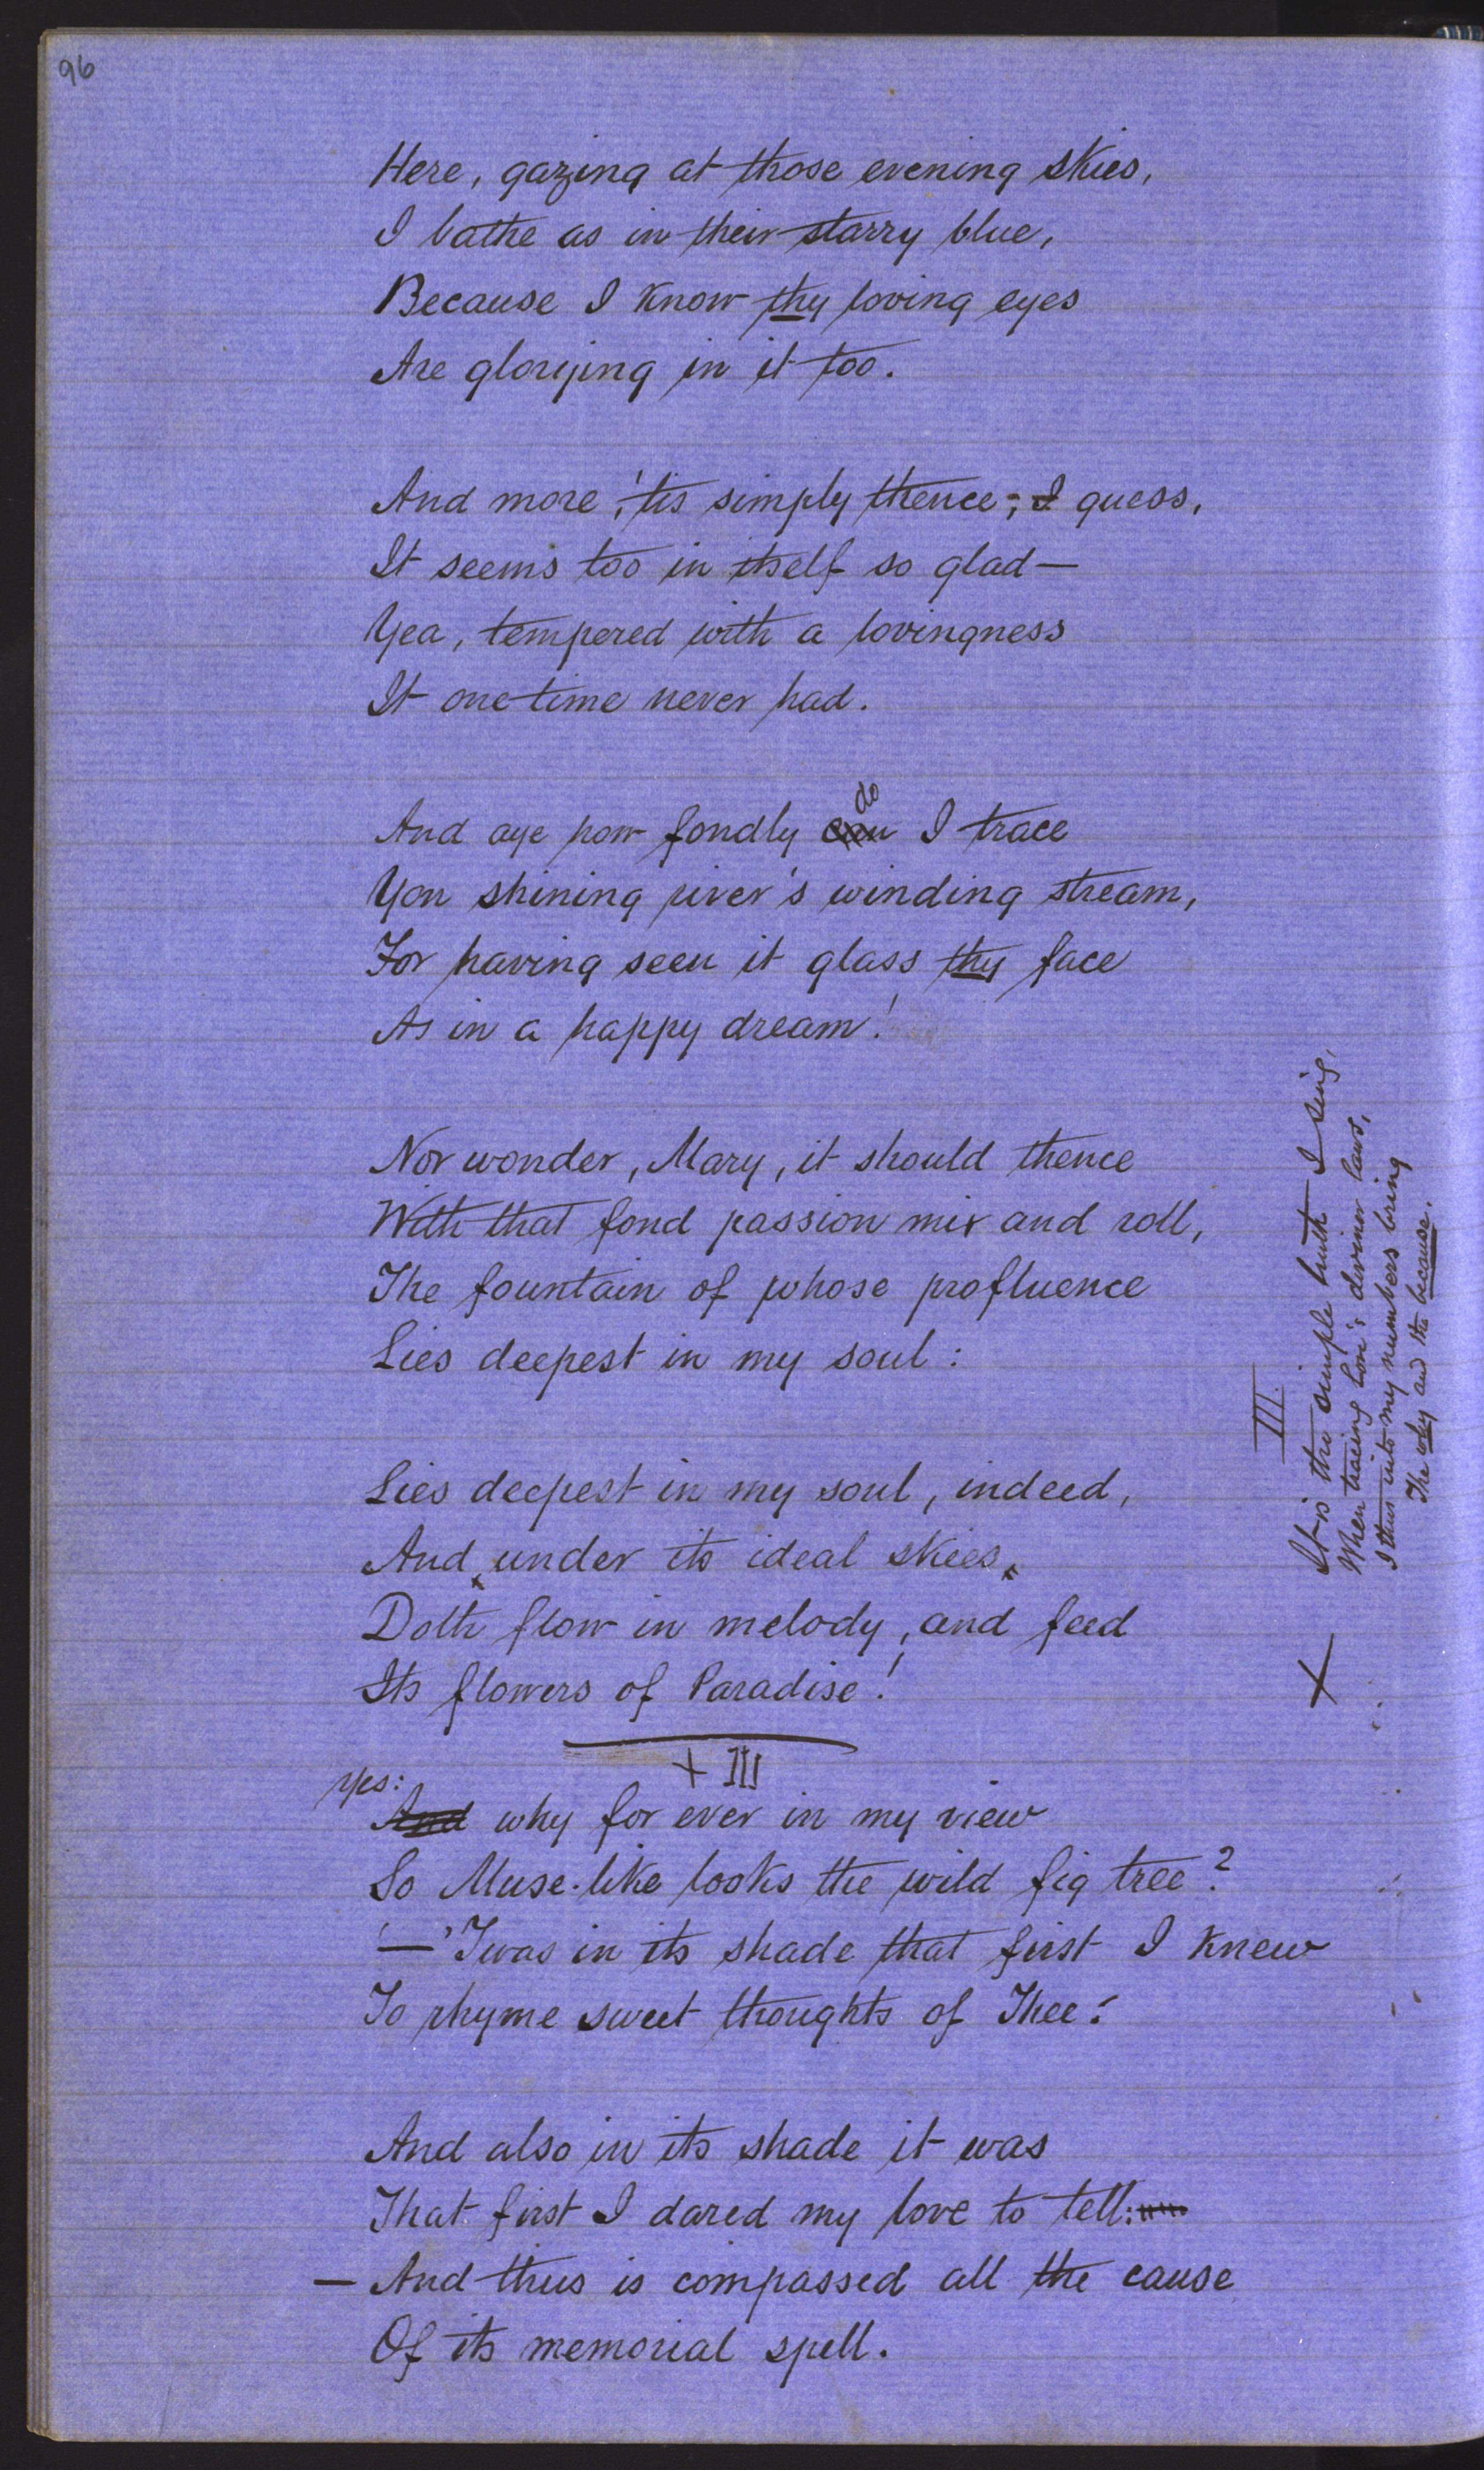 96
Here, gazing at those evening skies,
I bathe as in their starry blue,
Because I know thy loving eyes
Are glorying in it too.
And more, 'tis simply thence, I guess,
It seems too in itself so glad—
Yea, tempered with a lovingness
It one time never had.
do
And aye how fondly can I trace
Yon shining river's winding stream,
For having seen it glass thy face
As in a happy dream!
Nor wonder, Mary, it should thence
With that fond passion mix and roll,
The fountain of whose profluence
Lies deepest in my soul:
Lies deepest in my soul, indeed,
And, under its ideal skies,
Doth flow in melody, and feed
Its flowers of Paradise!
+ III
yes:
And why for ever in my view
So Muse-like looks the wild fig tree?
—'Twas in its shade that first I knew
To rhyme sweet thoughts of Thee:
And also in its shade it was
That first I dared my love to tell:
— And thus is compassed all the cause
Of its memorial spell.
III.
+ It is the simple truth I sing,
When tracing love's diviner laws,
I thus into my numbers bring
The why and the because.